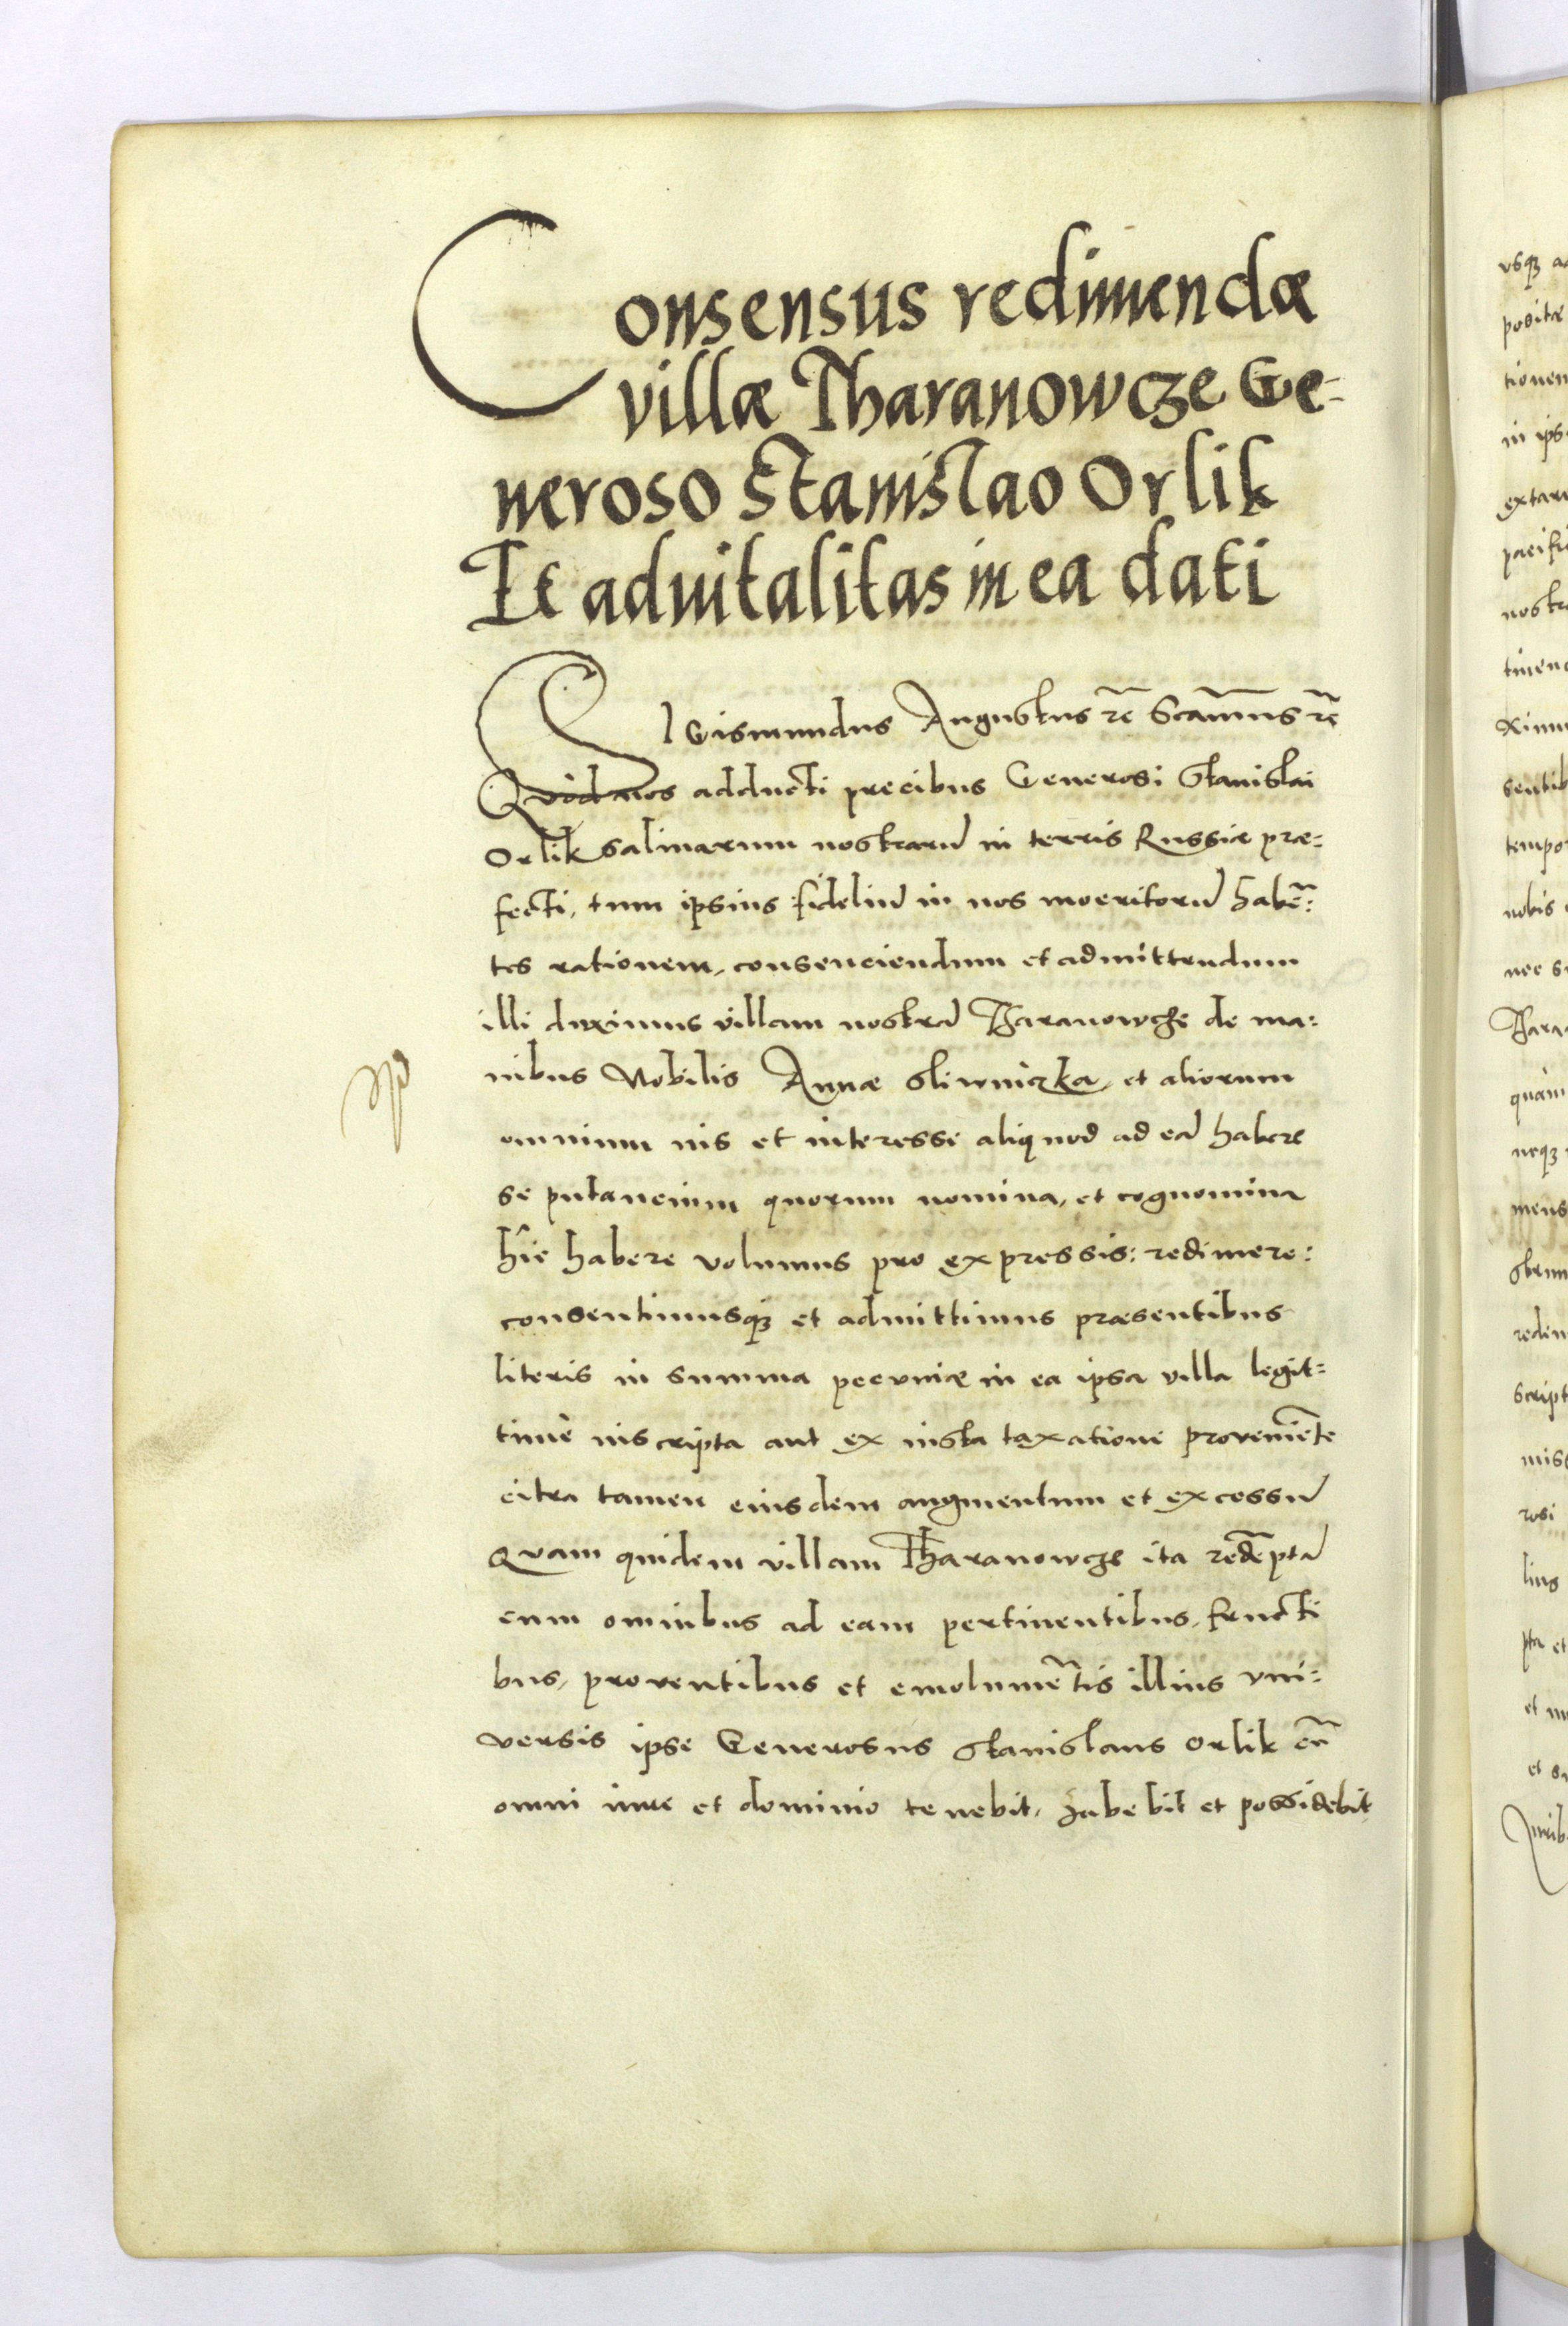 Consensus redimendæ
villæ Tharanowcze Ge-
neroso Stanislao Orlik
Et aduitalitas in ea dati
SIGismundus Augustus rē Scamus rē
Quòd nos adducti precibus Generosi Stanislai
Orlik salinarum nostrarū in terris Russiæ præ-
fecti, tum ipsius fideliū in nos moeritorū habē-
tes rationem, consenciendum et admittendum
illi duximus villam nostrā Tharanowcze de ma-
nibus Nobilis Annæ Sliwniczka, et aliorum
omnium ius et interesse aliquod ad eā habere
se putancium quorum nomina, et cognomina
hîc habere volumus pro expressis: redimere:
consentimusq3 et admittimus præsentibus
literis in summa pecuniæ in ea ipsa villa legit-
timè inscripta aut ex iusta taxatione proveniēte
citra tamen eiusdem augmentum et excessū
Quam quidem villam Tharanowcze ita redēptā
cum omnibus ad eam pertinentibus, fructi
bus, proventibus et emolumētis illius vni-
versis ipse Generosus Stanislaus Orlik cū
omni iure et dominio tenebit, habebit et possidebit
vsq3
positæ
in ips
nobis
nec
quàm
neq3
rosi
lius
pta et